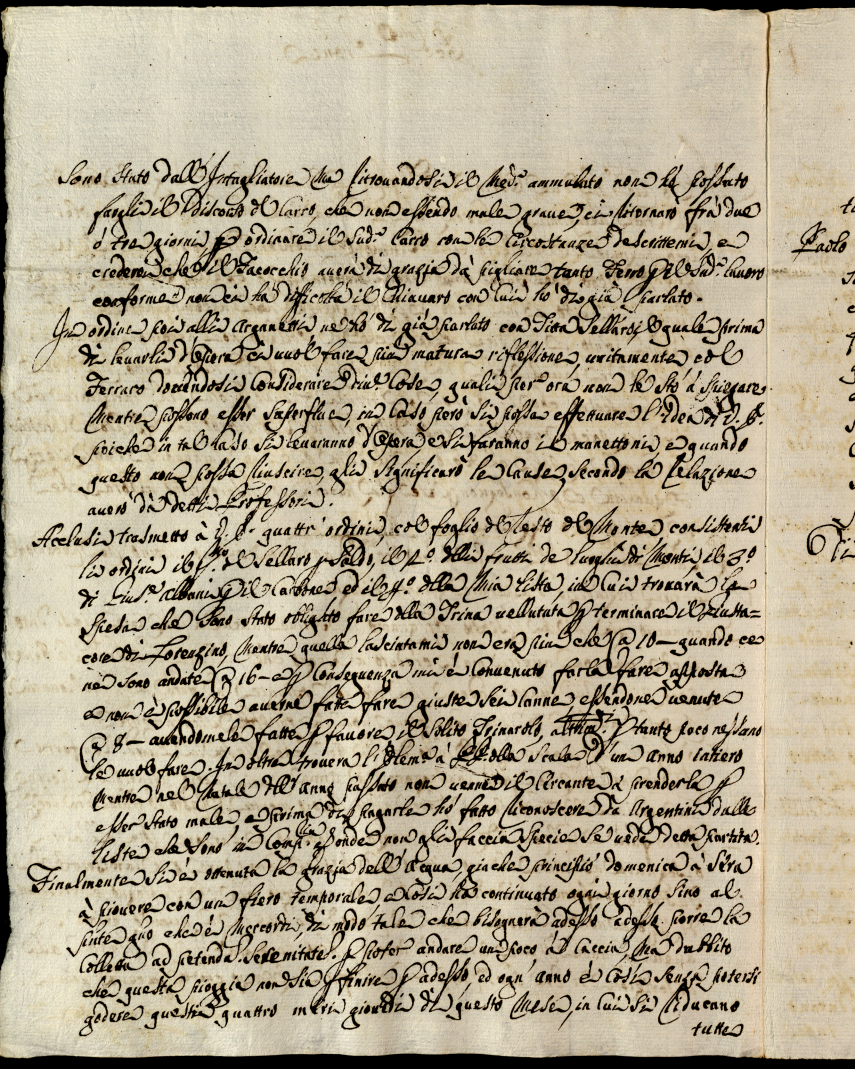 Sono stato dall'Intagliatore Ma ritrovandosi il Med.º ammalato non hà possuto
fargli il discorso del Carro, che non essendo male grave, ci ritornarò frà due
ò tre giorni p ordinare il Sud.º Carro con le Circostanze descrittemi, e
crederei che il averà di grazia dà pigliare tanto p il Sud.º lavoro
conforme non ci hà difficoltà il Chiavaro con cui hò di già parlato.
In ordine poi alli Arganetti ne hò di già parlato con Titta Sellaro, il quale prima
di levarli d'opera ci vuol fare più matura riflessione unitamente col
Ferraro dovendosi Considerare div.e Cose, quali per ora non le stò à spiegare
Mentre possono esser superflue, in Caso però si possa effettuare l'idea di V. S.
poiche in tal caso si levaranno d'opera e si faranno i manettoni, e quando
questo non possa riuscire, gli significarò le Cause secondo la Relazione
averò dà detti Professori.
Acclusi trasmetto à V. S. quattr'ordini, col foglio del resto del Monte consistenti
li ordini il P.mo del Sellaro p Saldo, il 2.º delli frutti de luoghi di Monti, il 3.º
di Gius.e Albani p il Carbone, ed il 4.º della Mia lista, in cui trovarà la
spesa che sono stato obligato fare della Trina vellutata p terminare il Giusta=
core di Lorenzino, Mentre quella lasciatami non era più che 10 — quando ce
ne sono andate 16 — e p Conseguenza mi è Convenuto farla fare apposta
e non è possibile averne fatte fare giuste sei Canne, essendone venute
8 — avendomele fatte p favore il Solito Trinarolo, p tanto poco nessuno
le vuol fare. In oltre trovera l'Elem.a à della Scala d'un anno intiero
Mentre nel Natale dell'anno passato non venne il Cercante à prenderla p
esser stato male e prima di pagarle hò fatto riconoscere da Argentini dalle
liste che sono in Comp.lia, onde non gli faccia specie se vede detta partita.
Finalmente si è ottenuta la grazia dell'acqua, giache principiò domenica à sera
à piovere con un fiero temporale e così hà continuato ogni giorno sino al
presente che è Mercordì, di modo tale che bisognerà adesso adesso porre la
Colletta ad petendã Serenitatẽ p poter andare un poco à Caccia, Ma dubbito
che questa pioggia non sia p finire p adesso ed ogn'anno è Così senza potersi
godere questi quattro meri giorni di questo Mese, in cui si riducano
tutte
Paolo